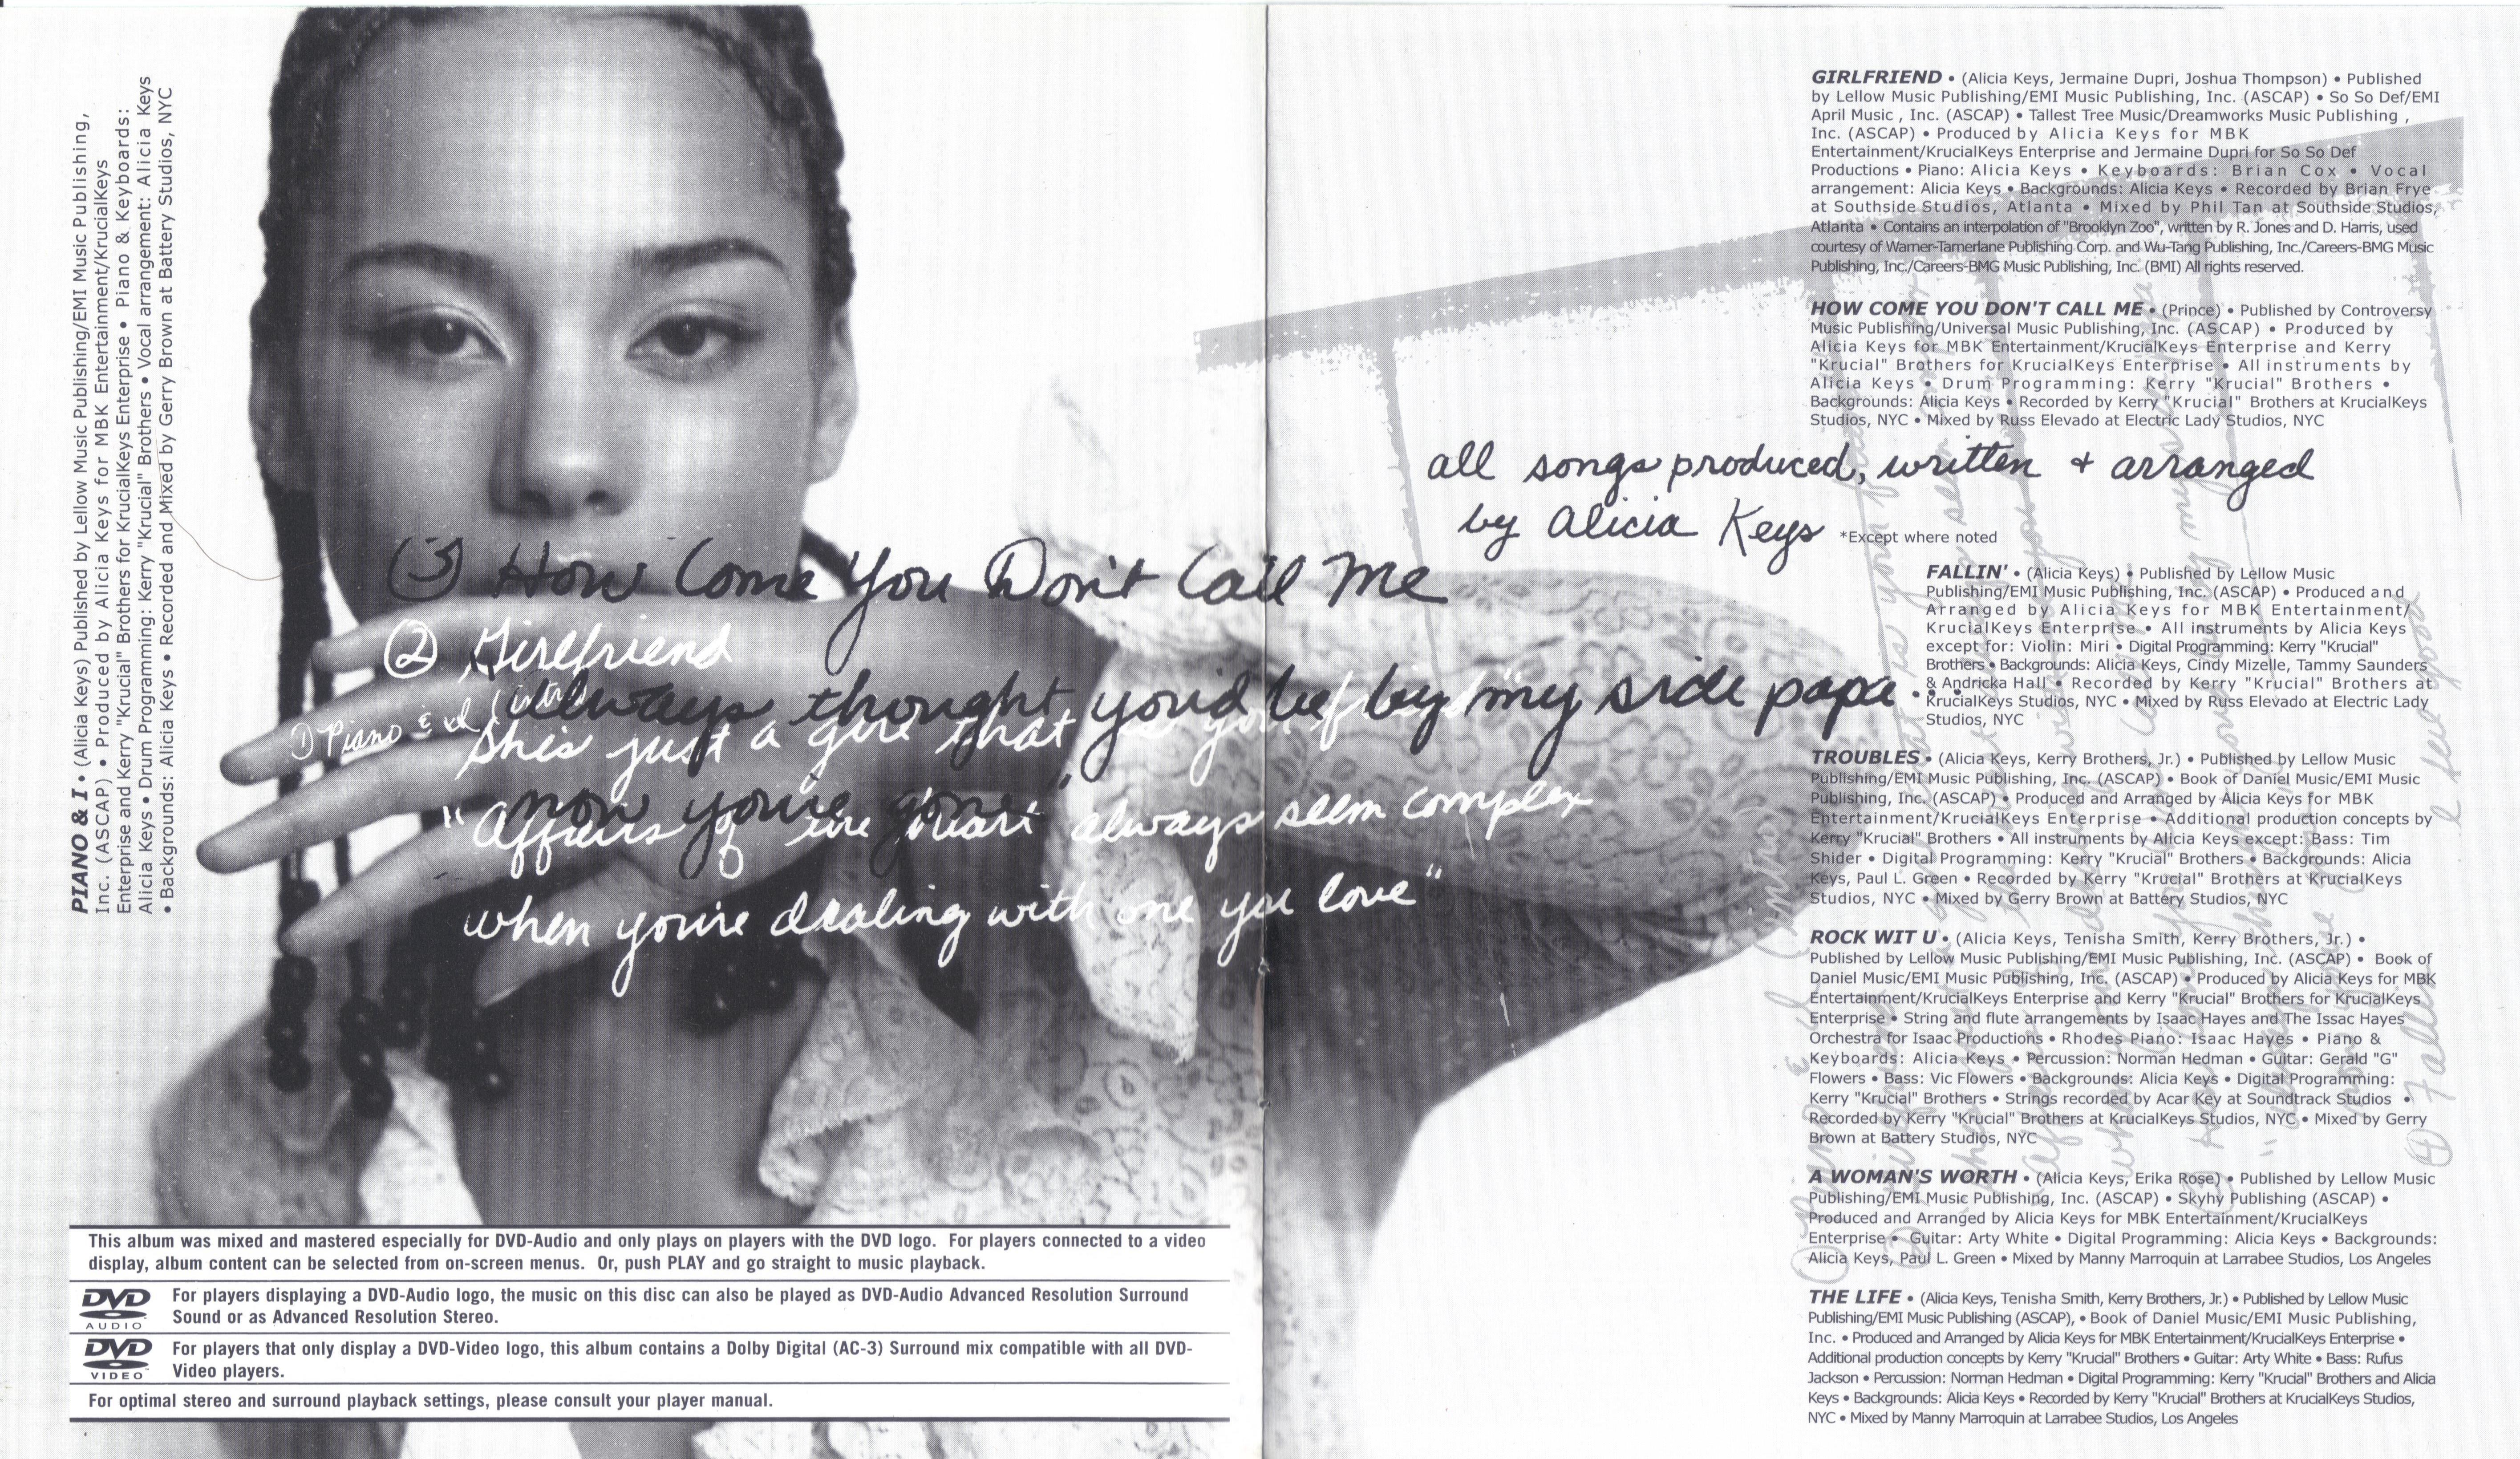 PIANO & I • (Alicia Keys) Published by Lellow Music Publishing/EMI Music Publishing,
Inc. (ASCAP) • Produced by Alicia Keys for MBK Entertainment/KrucialKeys
Enterprise and Kerry "Krucial" Brothers for KrucialKeys Enterprise • Piano & Keyboards:
Alicia Keys • Drum Programming: Kerry "Krucial" Brothers • Vocal arrangement: Alicia Keys
• Backgrounds: Alicia Keys • Recorded and Mixed by Gerry Brown at Battery Studios, NYC
(3) How Come You Don't Call Me
(2) Girlfriend
always thought you'd be by my side papa...
1) Piano & I (intro)
she's just a girl that is your friend
now you're gone"
"Affairs of the heart always seem complex
when you're dealing with one you love"
This album was mixed and mastered especially for DVD-Audio and only plays on players with the DVD logo. For players connected to a video
display, album content can be selected from on-screen menus. Or, push PLAY and go straight to music playback.
DVD
AUDIO
For players displaying a DVD-Audio logo, the music on this disc can also be played as DVD-Audio Advanced Resolution Surround
Sound or as Advanced Resolution Stereo.
DVD
VIDEO
For players that only display a DVD-Video logo, this album contains a Dolby Digital (AC-3) Surround mix compatible with all DVD-
Video players.
For optimal stereo and surround playback settings, please consult your player manual.
GIRLFRIEND • (Alicia Keys, Jermaine Dupri, Joshua Thompson) • Published
by Lellow Music Publishing/EMI Music Publishing, Inc. (ASCAP) • So So Def/EMI
April Music , Inc. (ASCAP) • Tallest Tree Music/Dreamworks Music Publishing ,
Inc. (ASCAP) • Produced by Alicia Keys for MBK
Entertainment/KrucialKeys Enterprise and Jermaine Dupri for So So Def
Productions • Piano: Alicia Keys • Keyboards: Brian Cox • Vocal
arrangement: Alicia Keys • Backgrounds: Alicia Keys • Recorded by Brian Frye
at Southside Studios, Atlanta • Mixed by Phil Tan at Southside Studios,
Atlanta • Contains an interpolation of "Brooklyn Zoo", written by R. Jones and D. Harris, used
courtesy of Warner-Tamerlane Publishing Corp. and Wu-Tang Publishing, Inc./Careers-BMG Music
Publishing, Inc./Careers-BMG Music Publishing, Inc. (BMI) All rights reserved.
HOW COME YOU DON'T CALL ME • (Prince) • Published by Controversy
Music Publishing/Universal Music Publishing, Inc. (ASCAP) • Produced by
Alicia Keys for MBK Entertainment/KrucialKeys Enterprise and Kerry
"Krucial" Brothers for KrucialKeys Enterprise • All instruments by
Alicia Keys • Drum Programming: Kerry "Krucial" Brothers •
Backgrounds: Alicia Keys • Recorded by Kerry "Krucial" Brothers at KrucialKeys
Studios, NYC • Mixed by Russ Elevado at Electric Lady Studios, NYC
all songs produced, written + arranged
by Alicia Keys *Except where noted
FALLIN' • (Alicia Keys) • Published by Lellow Music
Publishing/EMI Music Publishing, Inc. (ASCAP) • Produced and
Arranged by Alicia Keys for MBK Entertainment/
KrucialKeys Enterprise • All instruments by Alicia Keys
except for: Violin: Miri • Digital Programming: Kerry "Krucial"
Brothers • Backgrounds: Alicia Keys, Cindy Mizelle, Tammy Saunders
& Andricka Hall • Recorded by Kerry "Krucial" Brothers at
KrucialKeys Studios, NYC • Mixed by Russ Elevado at Electric Lady
Studios, NYC
TROUBLES • (Alicia Keys, Kerry Brothers, Jr.) • Published by Lellow Music
Publishing/EMI Music Publishing, Inc. (ASCAP) • Book of Daniel Music/EMI Music
Publishing, Inc. (ASCAP) • Produced and Arranged by Alicia Keys for MBK
Entertainment/KrucialKeys Enterprise • Additional production concepts by
Kerry "Krucial" Brothers • All instruments by Alicia Keys except: Bass: Tim
Shider • Digital Programming: Kerry "Krucial" Brothers • Backgrounds: Alicia
Keys, Paul L. Green • Recorded by Kerry "Krucial" Brothers at KrucialKeys
Studios, NYC • Mixed by Gerry Brown at Battery Studios, NYC
ROCK WIT U • (Alicia Keys, Tenisha Smith, Kerry Brothers, Jr.) •
Published by Lellow Music Publishing/EMI Music Publishing, Inc. (ASCAP) • Book of
Daniel Music/EMI Music Publishing, Inc. (ASCAP) • Produced by Alicia Keys for MBK
Entertainment/KrucialKeys Enterprise and Kerry "Krucial" Brothers for KrucialKeys
Enterprise • String and flute arrangements by Isaac Hayes and The Issac Hayes
Orchestra for Isaac Productions • Rhodes Piano: Isaac Hayes • Piano &
Keyboards: Alicia Keys • Percussion: Norman Hedman • Guitar: Gerald "G"
Flowers • Bass: Vic Flowers • Backgrounds: Alicia Keys • Digital Programming:
Kerry "Krucial" Brothers • Strings recorded by Acar Key at Soundtrack Studios •
Recorded by Kerry "Krucial" Brothers at KrucialKeys Studios, NYC • Mixed by Gerry
Brown at Battery Studios, NYC
A WOMAN'S WORTH • (Alicia Keys, Erika Rose) • Published by Lellow Music
Publishing/EMI Music Publishing, Inc. (ASCAP) • Skyhy Publishing (ASCAP) •
Produced and Arranged by Alicia Keys for MBK Entertainment/KrucialKeys
Enterprise • Guitar: Arty White • Digital Programming: Alicia Keys • Backgrounds:
Alicia Keys, Paul L. Green • Mixed by Manny Marroquin at Larrabee Studios, Los Angeles
THE LIFE • (Alicia Keys, Tenisha Smith, Kerry Brothers, Jr.) • Published by Lellow Music
Publishing/EMI Music Publishing (ASCAP), • Book of Daniel Music/EMI Music Publishing,
Inc. • Produced and Arranged by Alicia Keys for MBK Entertainment/KrucialKeys Enterprise •
Additional production concepts by Kerry "Krucial" Brothers • Guitar: Arty White • Bass: Rufus
Jackson • Percussion: Norman Hedman • Digital Programming: Kerry "Krucial" Brothers and Alicia
Keys • Backgrounds: Alicia Keys • Recorded by Kerry "Krucial" Brothers at KrucialKeys Studios,
NYC • Mixed by Manny Marroquin at Larrabee Studios, Los Angeles